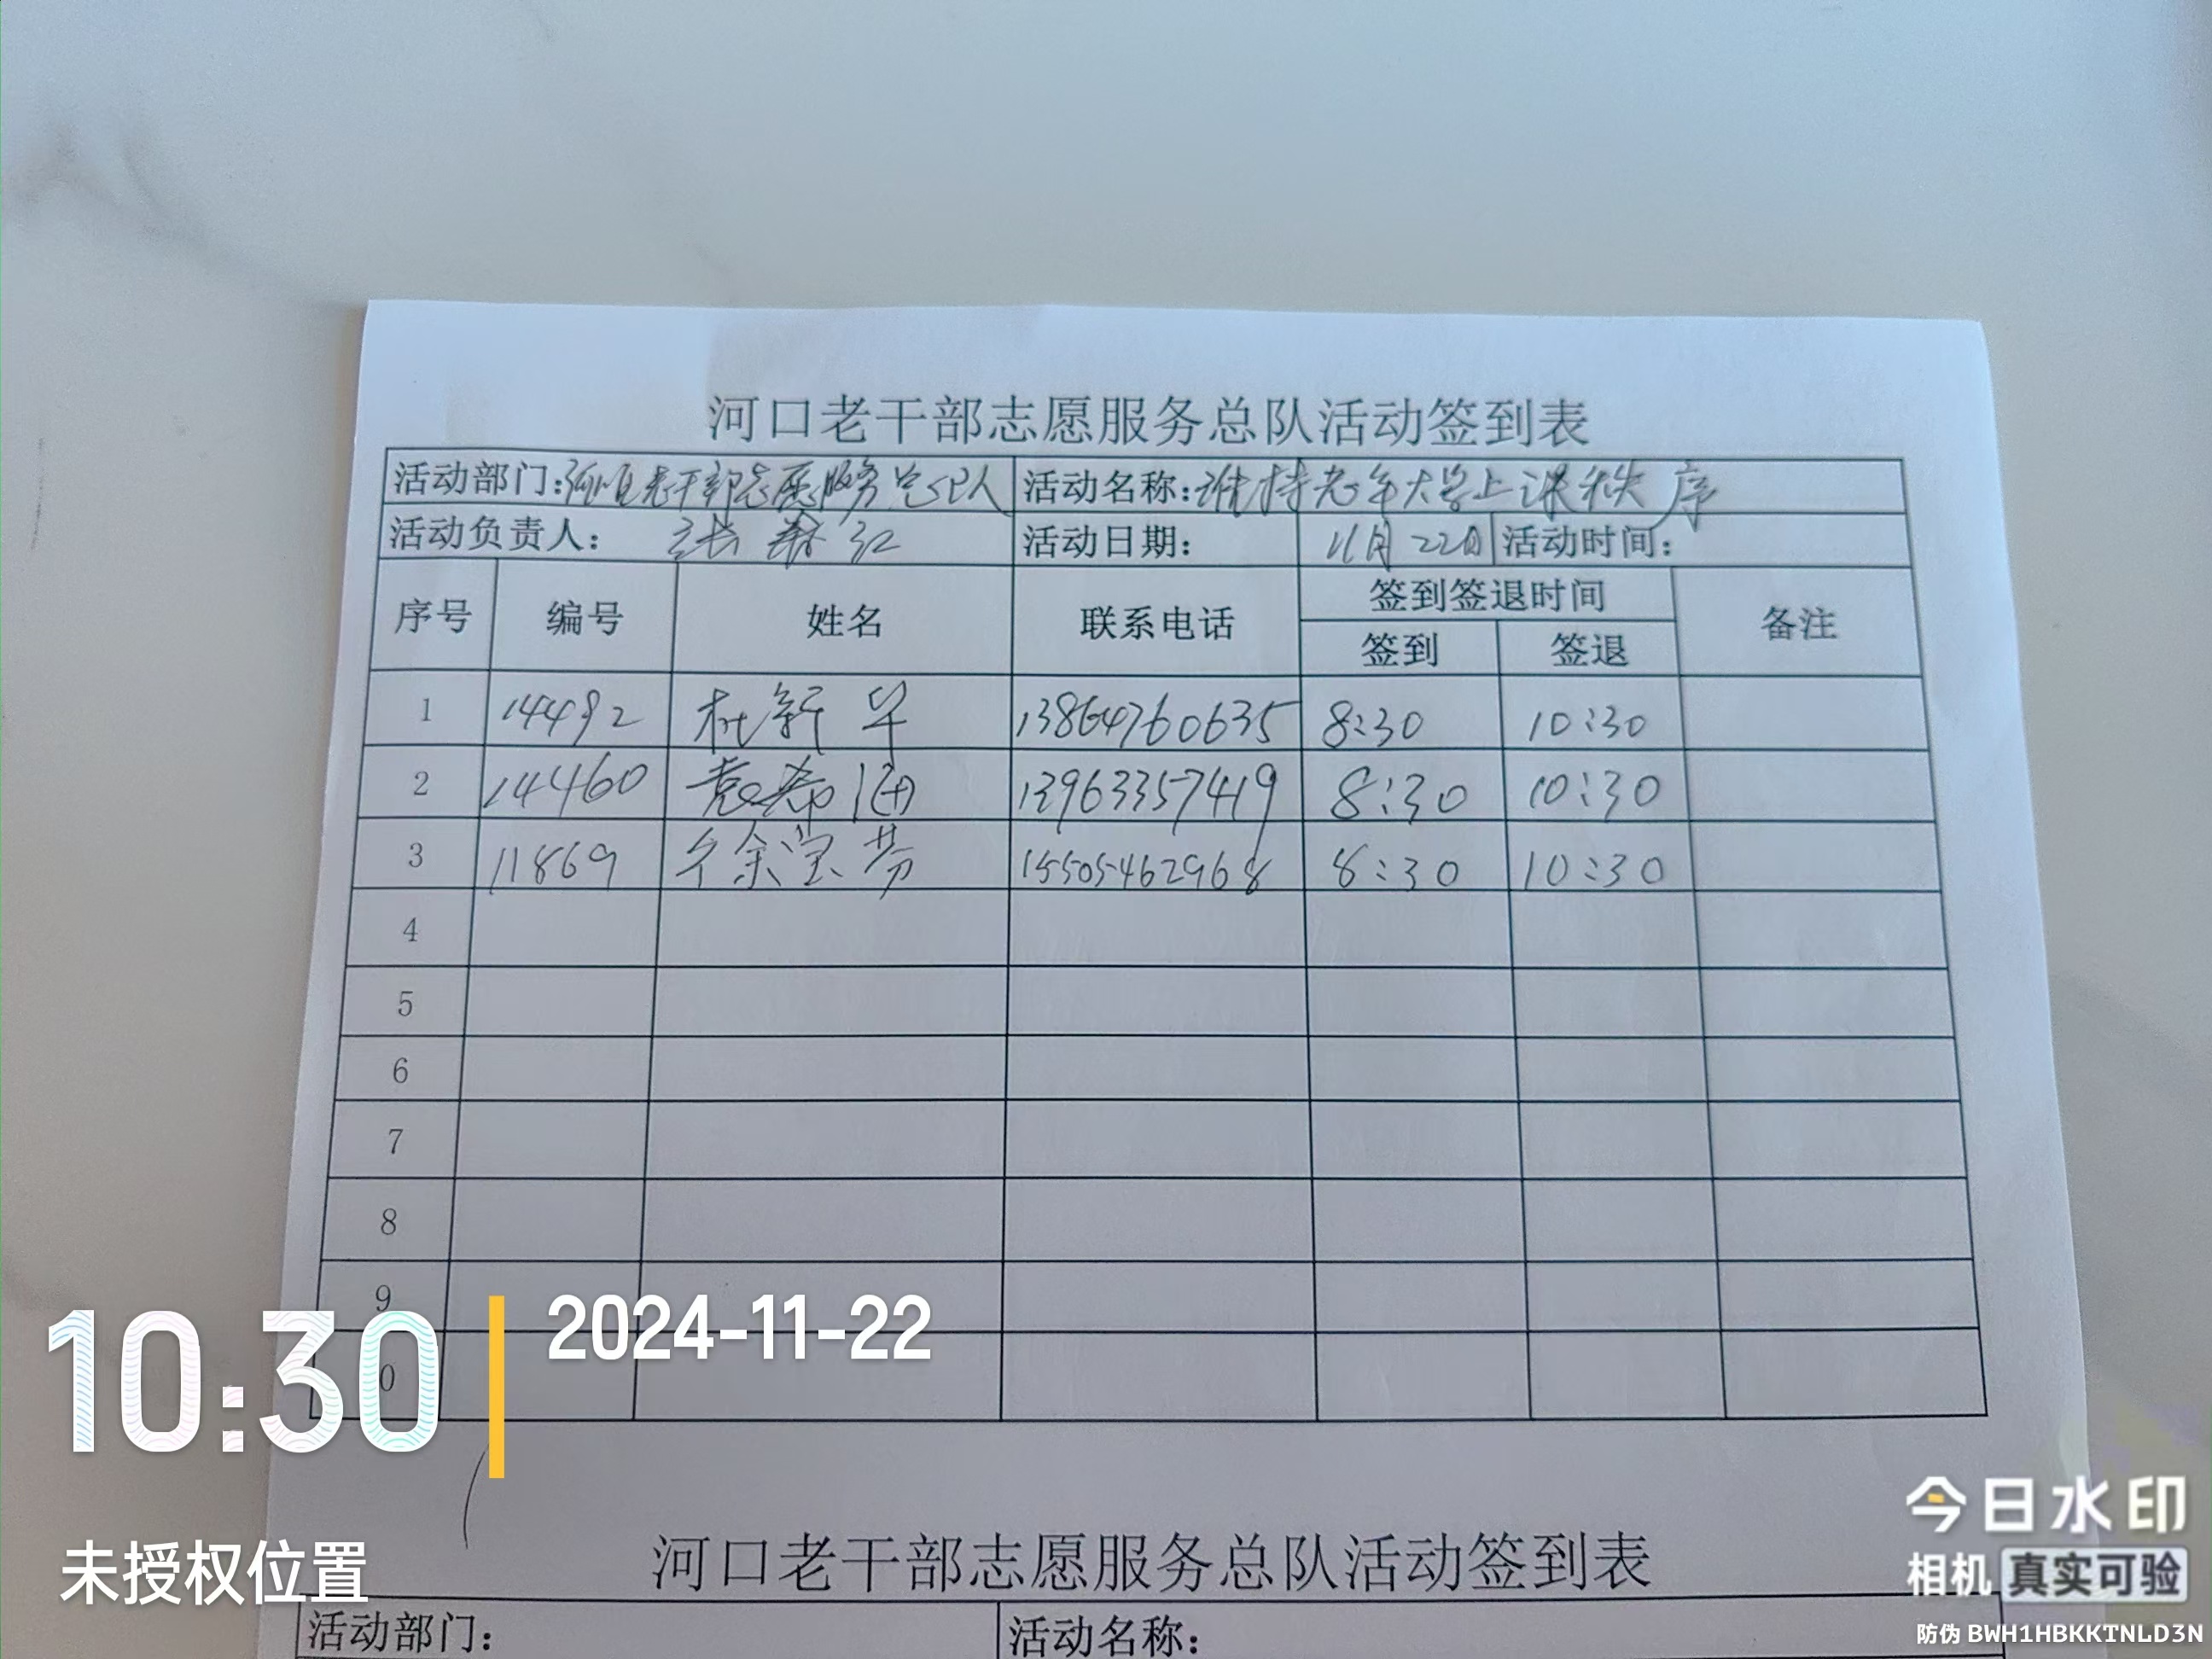 河口老干部志愿服务总队活动签到表
活动部门:河口老干部志愿服务总队 活动名称:维持老年大学上课秩序
活动负责人: 张 红 活动日期: 11月22日 活动时间:
序号 编号 姓名 联系电话 签到签退时间 备注
签到 签退
1 14492 杜新华 13864760635 8:30 10:30
2 14460 袁希 13963357419 8:30 10:30
3 11869 徐宝芳 15505462968 8:30 10:30
4
5
6
7
8
9
0
10:30 2024-11-22
未授权位置
河口老干部志愿服务总队活动签到表
活动部门: 活动名称:
今日水印
相机 真实可验
防伪 BWH1HBKKTNLD3N